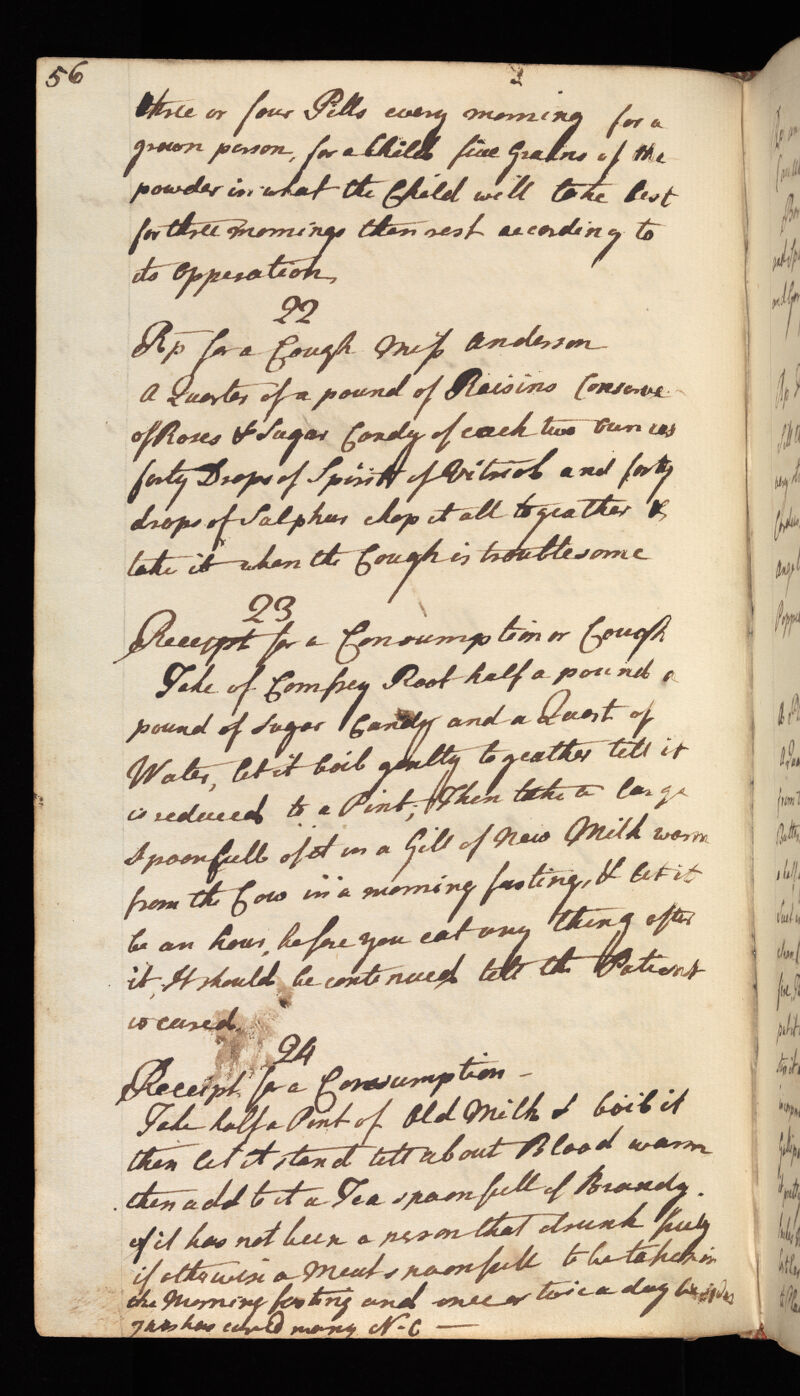 56
three or four Pills every morning for a
grown person, for a Child five Grains of the
powder in what the Child will take best
for three mornings then rest according to
its opperation,
22
Rp for a Cough Miss Anderson
A Quarter of a pound of Raisins Conserve
of Roses & Sugar Candy of each two ounces
forty Drops of Spirit of Vitriol and forty
drops of Sulphur chop it all togeather &
take it when the Cough is troublesome
23
Receipt for a Consumption or Cough
Take of Comfrey Root half a pound a
pound of Sugar Candy and a Quart of
Water, let it boil gently togeather till it
is reduced to a Pint, Then take a large
Spoonfull of it in a Gill of New Milk warm
from the Cow in a morning fasting, & let it
be an hour before you eat any thing after
it, It should be continued till the Patient
is cured.
24
Receipt for a Consumption -
Take half a Pint of Old Milk & boil it
then let it stand till about Blood warm
then add to it a Tea spoonfull of Brandy.
if it has not been a person that drunk freely
if otherwise a Meat spoonfull to be taken in
the Morning fasting and once or twice a day besides
this has cured many N-C —